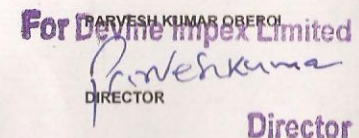 For Devine Impex Limited
PARVESH KUMAR OBEROI
Parveshkumar
DIRECTOR
Director